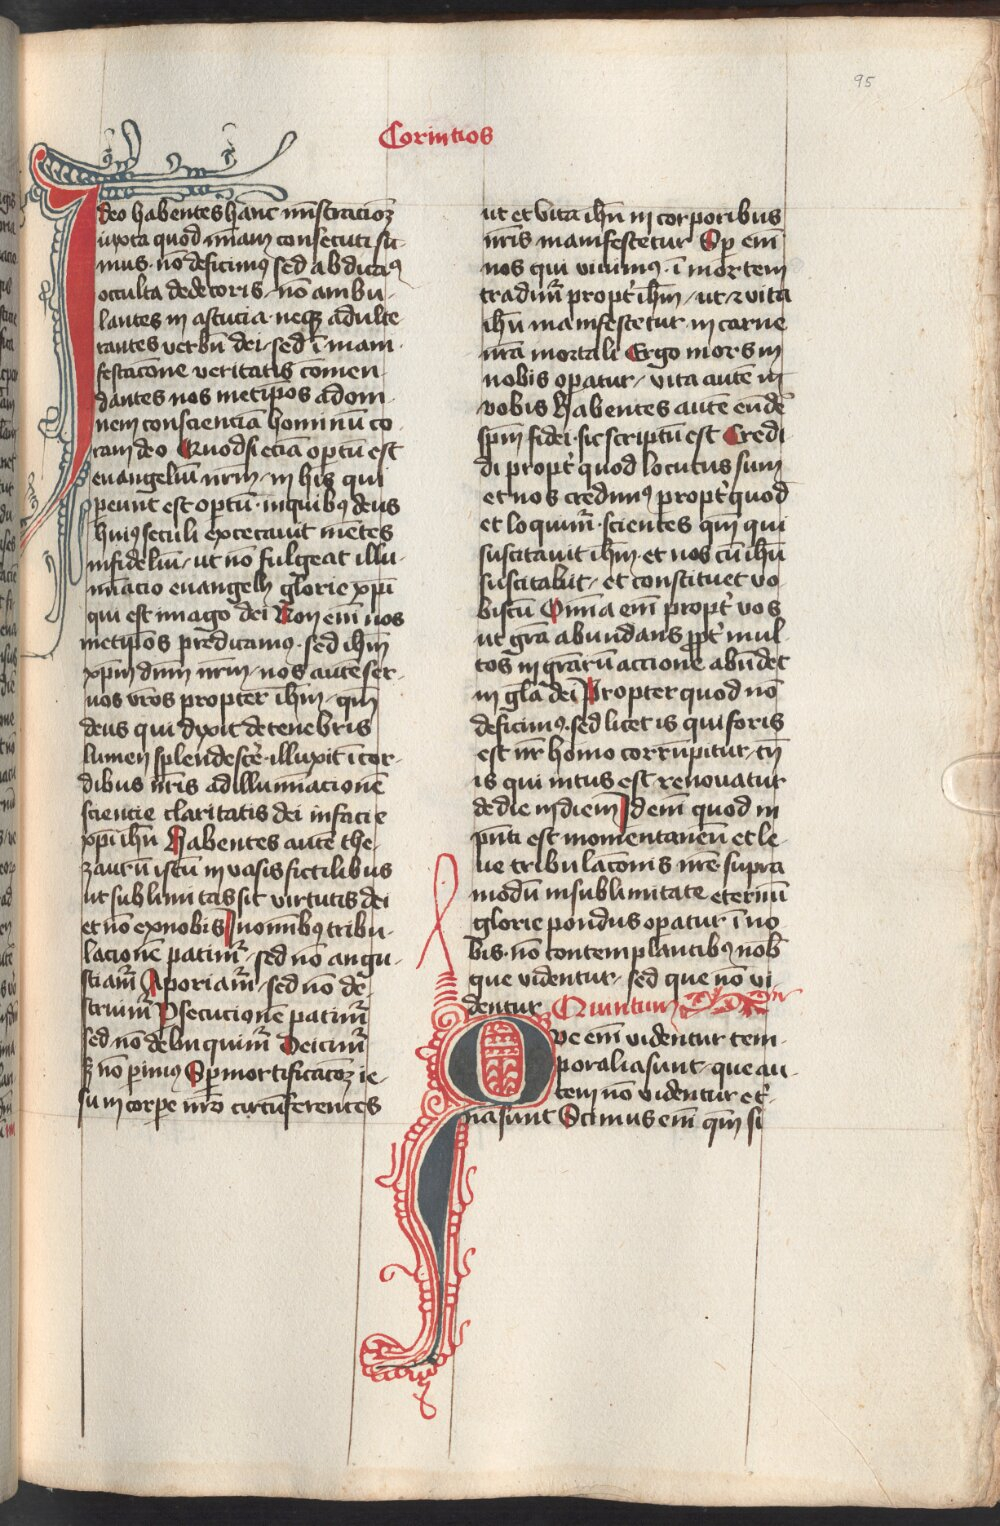 95
Corintios
Ideo habentes hanc mi̅straciōꝫ
iuxta quod mīam consecuti su
mus · nō deficimꝰ sed abdicaꝰ
occulta dedecoris · nō ambu-
lantes in astucia · neqꝫ adulte
rantes verbū dei · sed ī mani
festacōne veritatis comen-
dantes nos metip̄os ad om-
nem conscienciā hominū co-
ram deo Quod si eciā op̄tū est
evangeliū nr̄m · in his qui
pereunt est op̄tū · in quibꝰ deus
huiꝰ seculi excecauit mētes
infideliū · ut nō fulgeat illu-
minacio evangelij glorie xp̄i
qui est imago dei Non em̄ nos
metip̄os predicamꝰ · sed ih̄m
xp̄m dnm̄ nr̄m · nos autē ser-
uos vr̄os propter ih̄m · qm̄
deus qui dixit de tenebris
lumen splendescēˀ · illuxit ī cor-
dibus nr̄is ad illuminacionē
sciencie claritatis dei in facie
xp̄i ih̄u Habentes autē the-
zaurū istū in vasis fictilibus
ut sublimitas sit virtutis dei
et nō ex nobis In om̄ibꝰ tribu-
lacionē patimˀ · sed nō angu-
stiamˀ Aporiamˀ · sed nō de-
struimˀ Psecucionē patimˀ
sed nō delinquimˀ Deicimˀ
sꝫ nō perimꝰ Sp̄ mortificacōꝫ ie-
su in corpe nr̄o circūferentes
ut et vita ih̄u in corporibus
nr̄is manifestetur Sp̄ em̄
nos qui viuimꝰ · ī mortem
tradimˀ proptˀ ih̄m · ut ⁊ vita
ih̄u manifestetur in carne
nr̄a mortali Ergo mors in
nobis operatur · vita autē in
vobis Habentes autē eundē
sp̄m fidei · sic scriptū est Credi
di proptˀ quod locutus sum
et nos credimꝰ proptˀ quod
et loquimˀ · scientes qm̄ qui
suscitauit ih̄m · et nos cū ih̄u
suscitabit · et constituet vo
biscū Omīa em̄ proptˀ vos
ut gr̄a abundans ꝓptˀ mul
tos in gr̄arū accione abūdet
in gl̄a dei Propter quod nō
deficimꝰ · sed licet is qui foris
est nr̄ homo corrumpitur · tn̄
is qui intus est renouatur
de die in diem Id em̄ quod in
pn̄ti est momentaneū et le-
ue tribulacōnis nr̄e · supra
modū in sublimitate eternū
glorie pondus operatur ī no
bis · nō contemplantibꝰ nob̄
que videntur · sed que nō vi
dentur Quintum
Que em̄ videntur tem-
poralia sunt · que au-
tem nō videntur etˀ-
na sunt Scimus em̄ qm̄ si